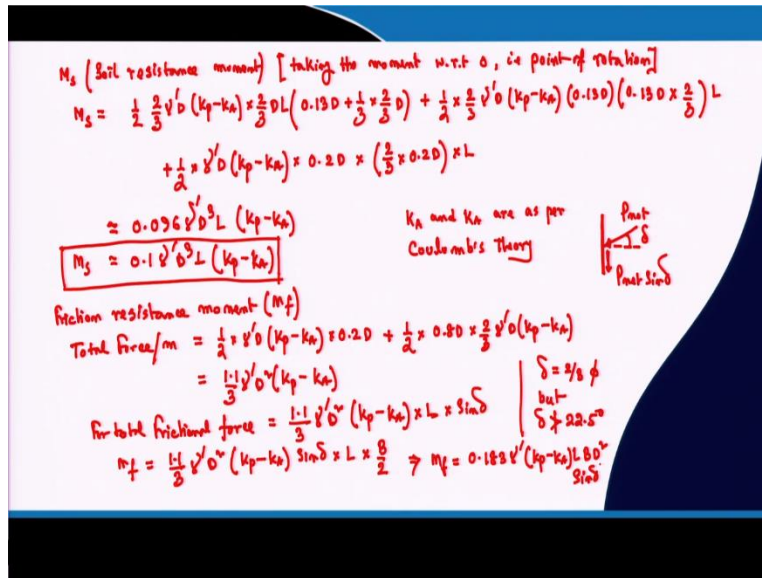 Ms (Soil resistance moment) [taking the moment w.r.t o, i.e point of rotation]
Ms = 1/2 2/3 γ'D (Kp-KA) × 2/3 DL (0.13D + 1/3 × 2/3 D) + 1/2 × 2/3 γ'D (Kp-KA) (0.13D) (0.13D × 2/3) L
+ 1/2 × γ'D (Kp-KA) × 0.2D × (2/3 × 0.2D) × L
≈ 0.096 γ'D³L (Kp-KA)
Ms ≈ 0.1 γ'D³L (Kp-KA)
KA and KA are as per
Coulomb's Theory
Pnet
δ
Pnet Sinδ
Friction resistance moment (Mf)
Total Force/m = 1/2 × γ'D (Kp-KA) × 0.2D + 1/2 × 0.8D × 2/3 γ'D (Kp-KA)
= 1.1/3 γ'D² (Kp-KA)
For total frictional force = 1.1/3 γ'D² (Kp-KA) × L × Sinδ
δ = 2/3 φ
but
δ ≯ 22.5°
Mf = 1.1/3 γ'D² (Kp-KA) Sinδ × L × B/2 ⇒ Mf = 0.183 γ' (Kp-KA) L B D²
Sinδ